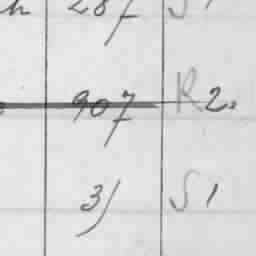 287 S1
907 R2.
3) S1